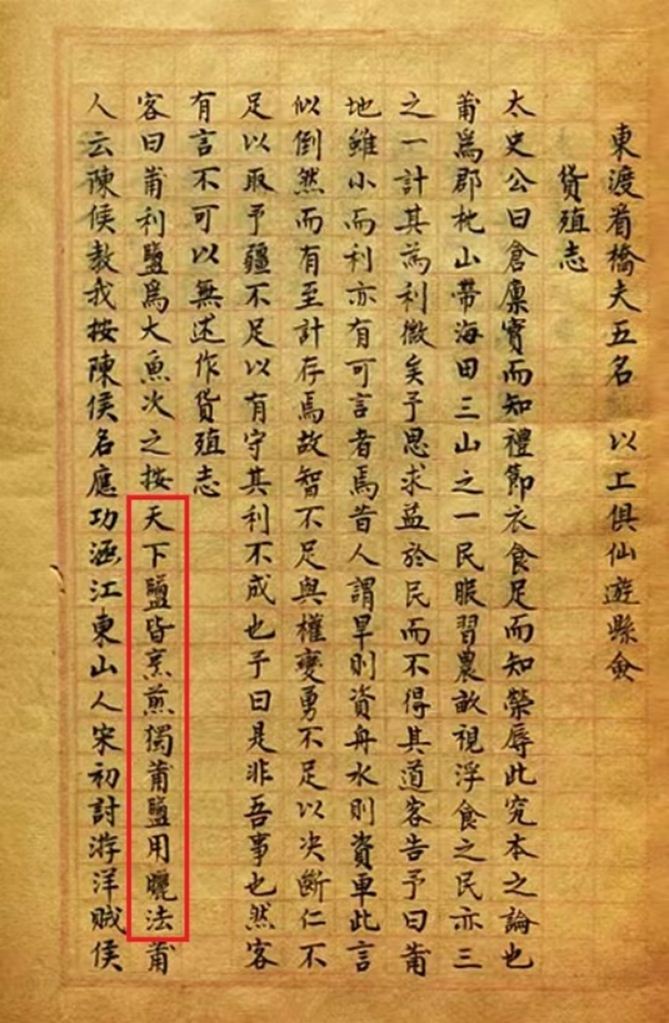 東渡看橋夫五名 以上俱仙遊縣僉
貨殖志
太史公曰倉廩實而知禮節衣食足而知榮辱此究本之論也
莆爲郡枕山帶海田三山之一民服習農畝視浮食之民亦三
之一計其為利微矣予思求益於民而不得其道客告予曰莆
地雖小而利亦有可言者焉昔人謂旱則資舟水則資車此言
似倒然而有至計存焉故智不足與權變勇不足以決斷仁不
足以取予彊不足以有守其利不成也予曰是非吾事也然客
有言不可以無述作貨殖志
客曰莆利鹽爲大魚次之按天下鹽皆烹煎獨莆鹽用曬法莆
人云陳侯教我按陳侯名應功涵江東山人宋初討游洋賊侯